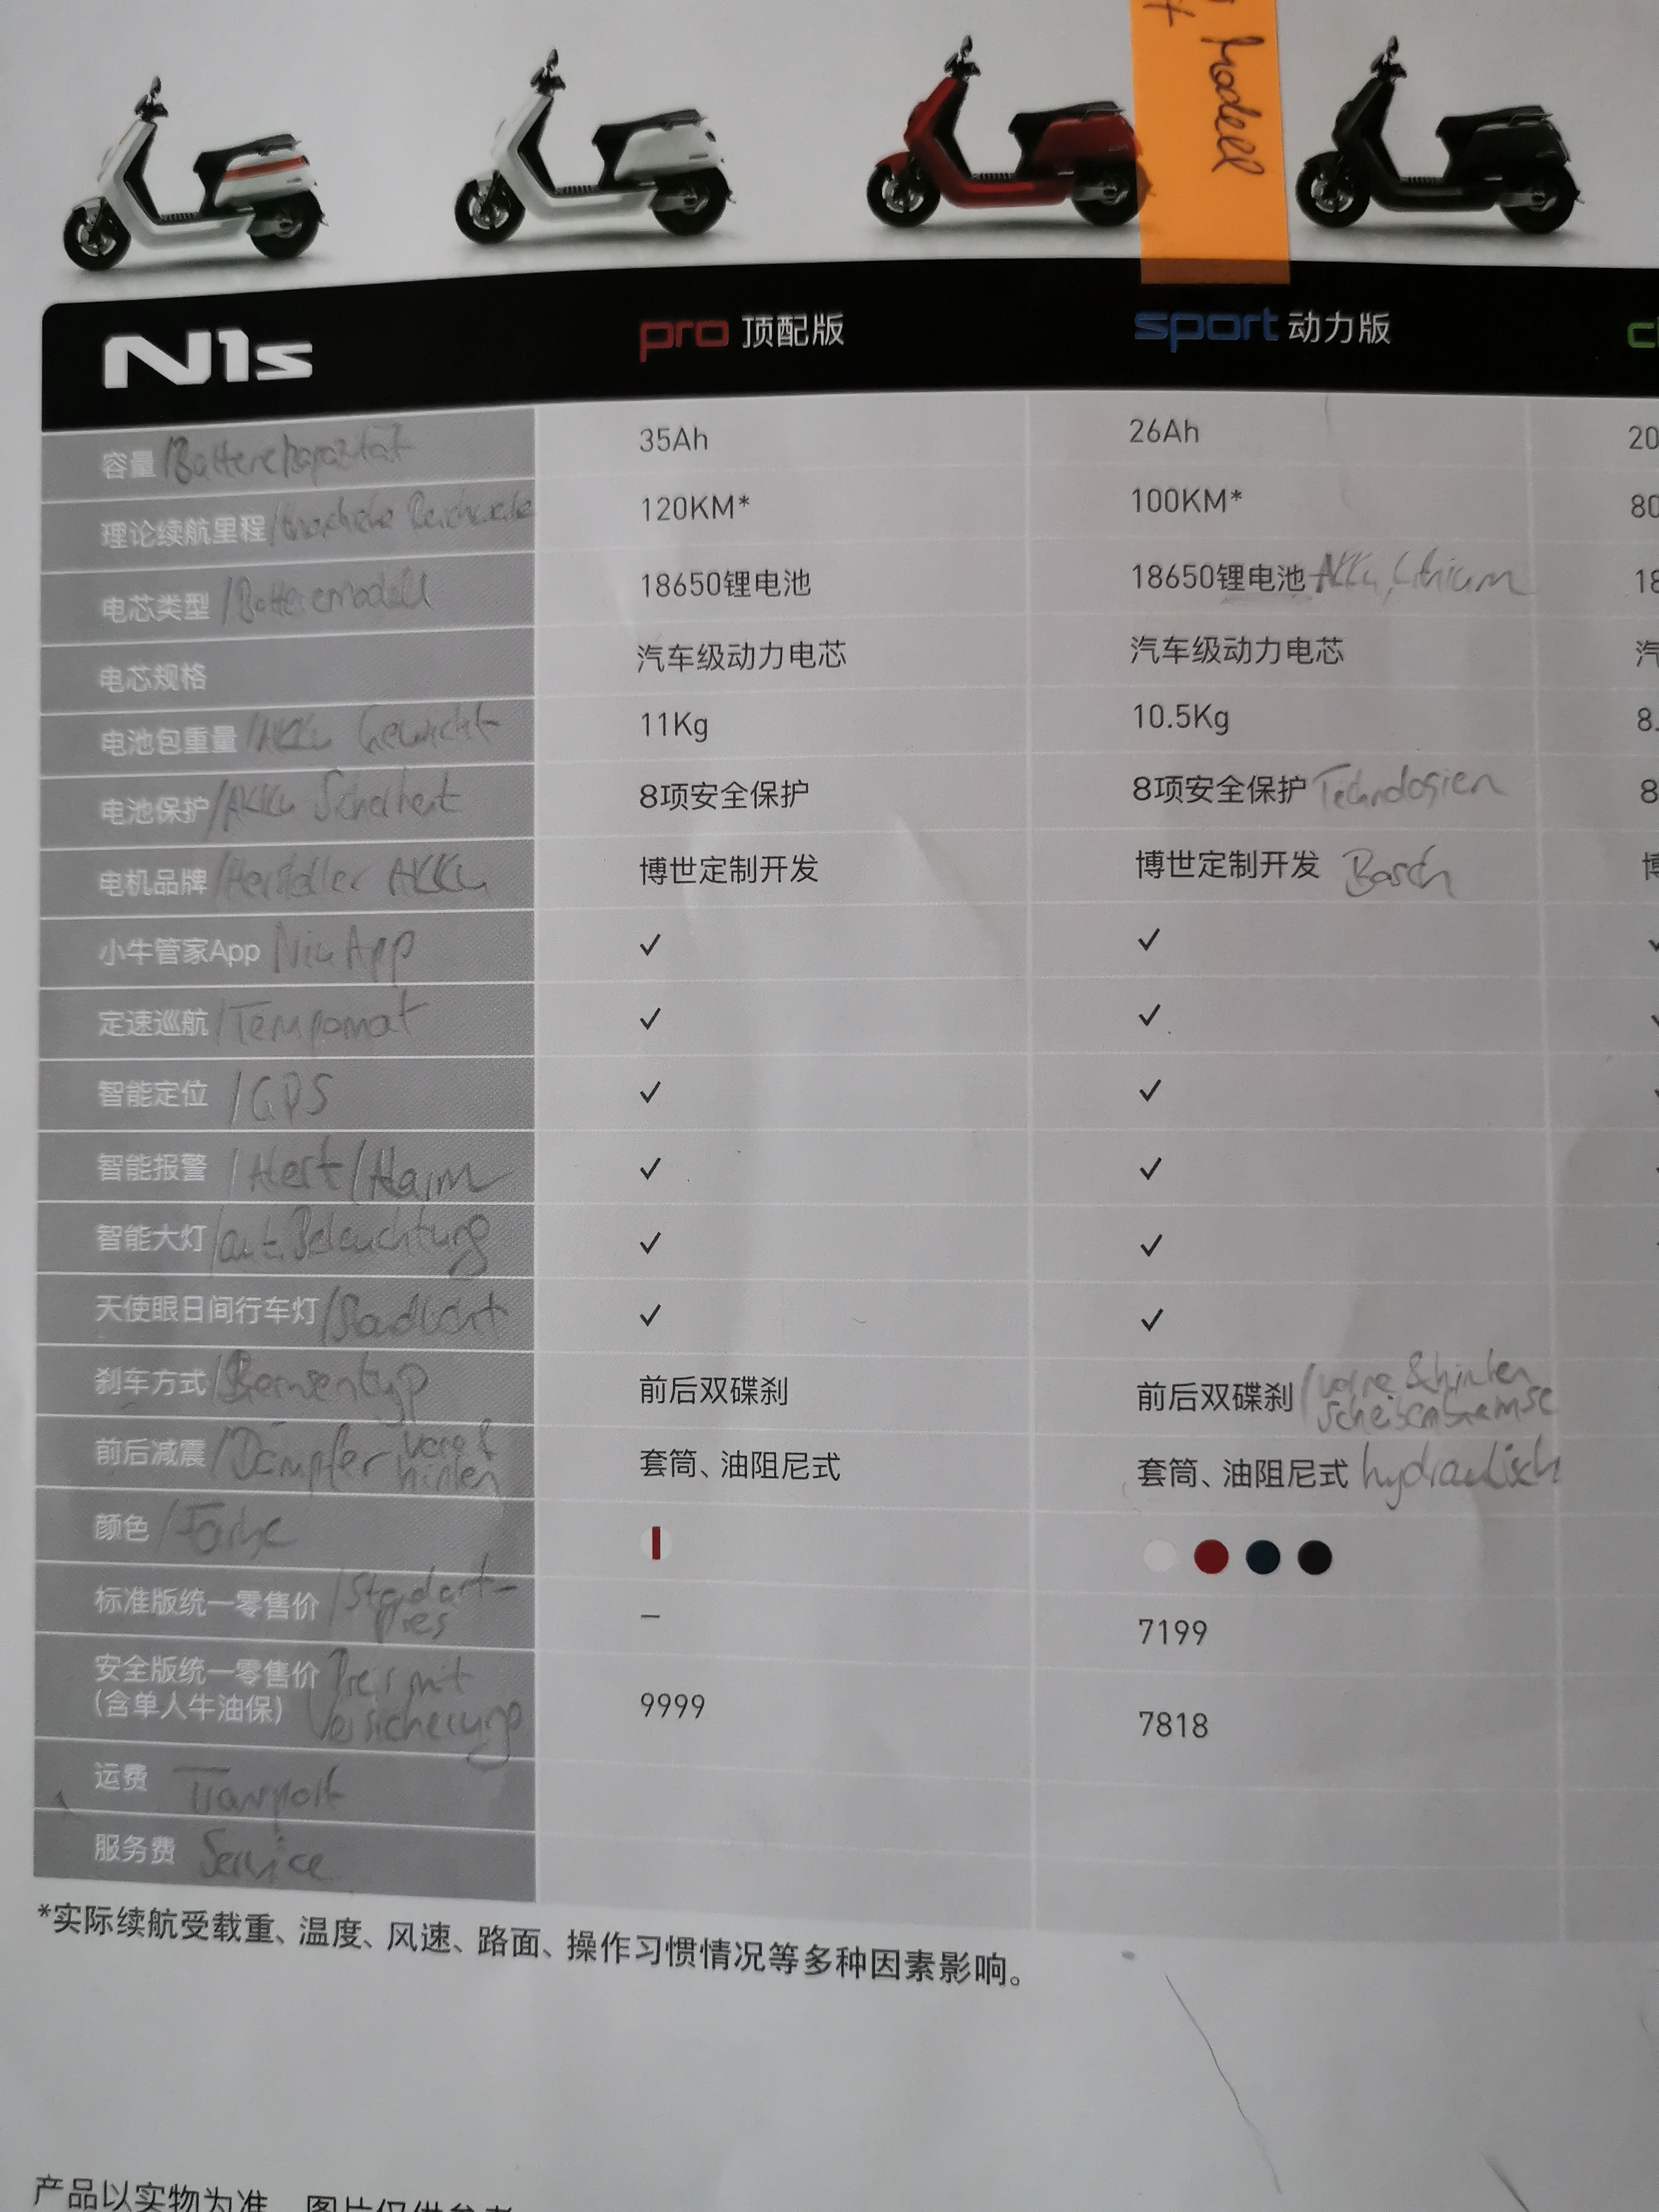 Modell
N1s pro 顶配版 sport 动力版
容量 /Batteriekapazität 35Ah 26Ah 20
理论续航里程/ 120KM* 100KM* 80
电芯类型 /Batteriemodell 18650锂电池 18650锂电池 Akku, Lithium 18
电芯规格 汽车级动力电芯 汽车级动力电芯 汽
电池包重量 /Akku Gewicht 11Kg 10.5Kg 8.
电池保护/Akku Sicherheit 8项安全保护 8项安全保护 Technologien 8
电机品牌 /Hersteller Akku 博世定制开发 博世定制开发 Bosch 博
小牛管家App Niu App ✓ ✓ ✓
定速巡航 /Tempomat ✓ ✓ ✓
智能定位 /GPS ✓ ✓
智能报警 /Alert/Alarm ✓ ✓
智能大灯 /aut. Beleuchtung ✓ ✓
天使眼日间行车灯/Standlicht ✓ ✓
刹车方式/Bremsentyp 前后双碟刹 前后双碟刹 /vorne & hinten
Scheibenbremse
前后减震 /Dämpfer vorne & 套筒、油阻尼式 套筒、油阻尼式 hydraulisch
hinten
颜色 /Farbe
标准版统一零售价 /Standart- – 7199
preis
安全版统一零售价 Preis mit 9999 7818
(含单人牛油保) Versicherung
运费 Transport
服务费 Service
*实际续航受载重、温度、风速、路面、操作习惯情况等多种因素影响。
产品以实物为准，图片仅供参考